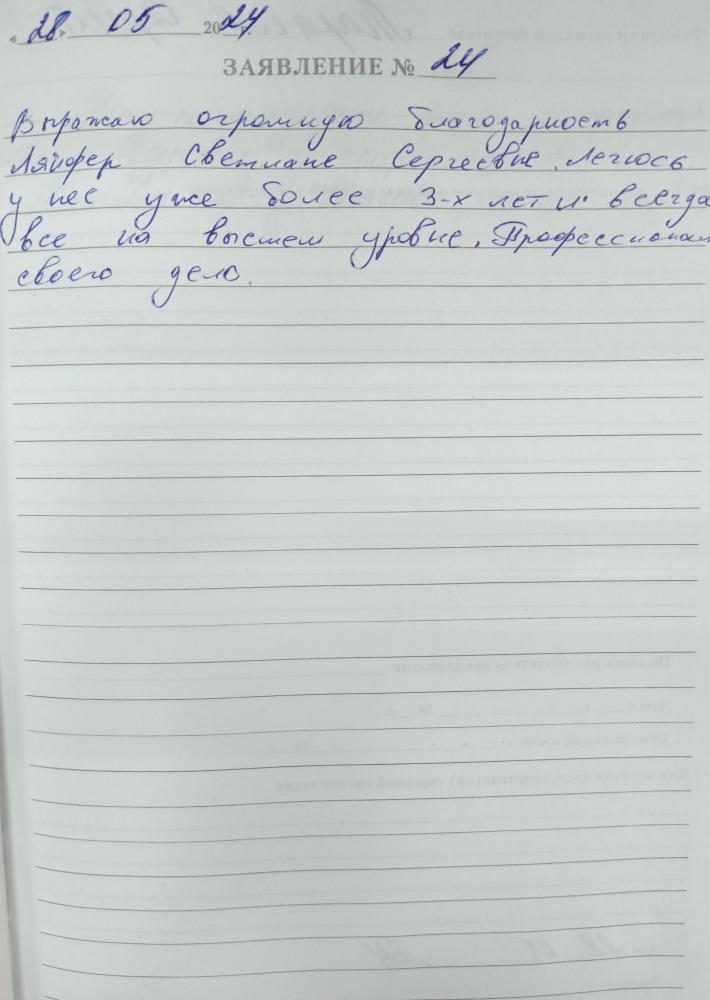 «28» 05 2024 г.
ЗАЯВЛЕНИЕ № 24
Выражаю огромную благодарность
Ляйфер Светлане Сергеевне. Лечусь
у нее уже более 3-х лет и всегда
все на высшем уровне. Профессионал
своего дела.
Подпись руководителя предприятия